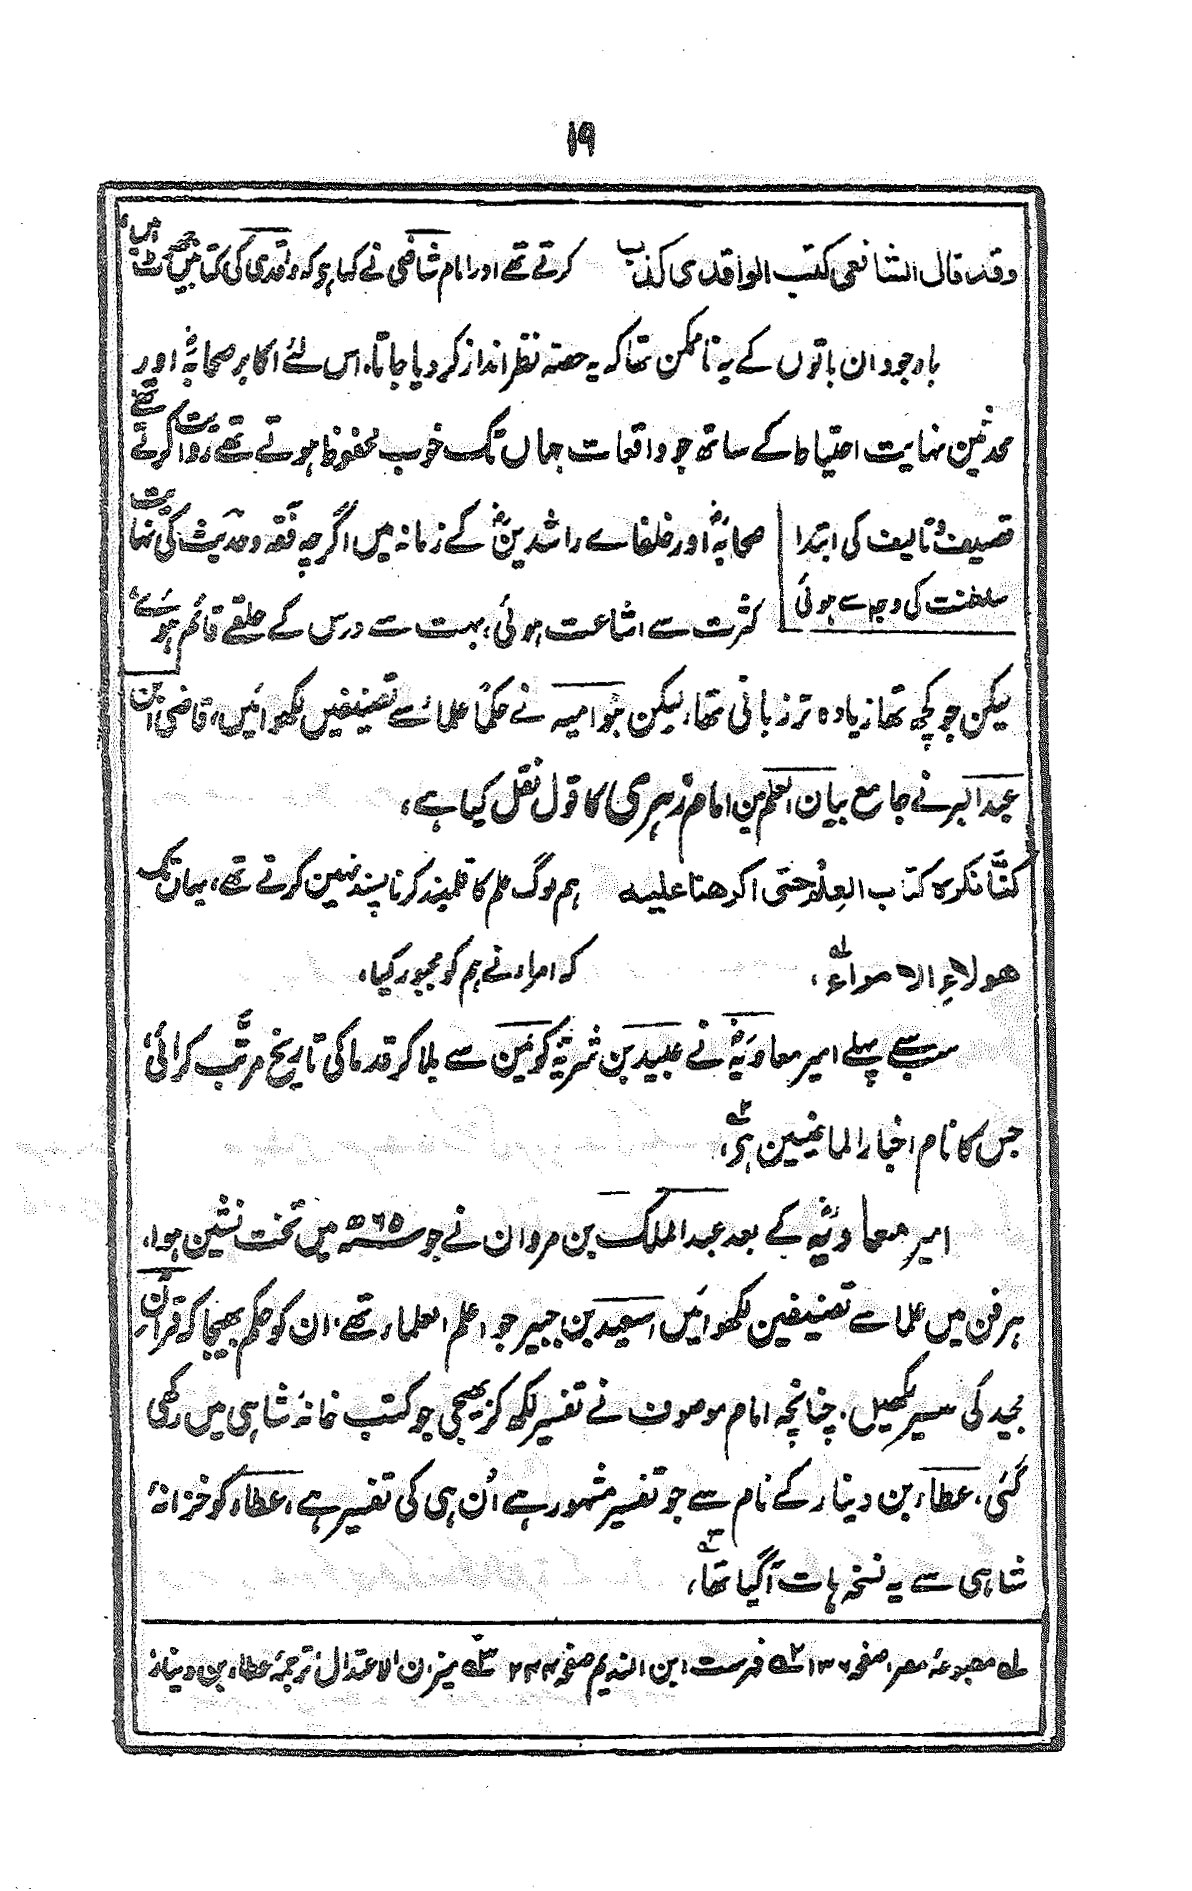 ۱۹
وقد قال الشافعی کتب الواقدی کذب کرتے تھے اور امام شافعی نے کہا ہو کہ واقدی کی کتابیں جھوٹ ہیں،
باوجود ان باتوں کے یہ ناممکن تھا کہ یہ حصہ نظر انداز کر دیا جاتا، اس لئے اکابر صحابہؓ اور
محدثین نہایت احتیاط کے ساتھ جو واقعات جہاں تک خوب محفوظ ہوتے تھے روایت کرتے تھے
تصنیف و تالیف کی ابتدا
سلطنت کی وجہ سے ہوئی
صحابہؓ اور خلفاے راشدینؓ کے زمانہ میں اگرچہ فقہ و حدیث کی نہایت
کثرت سے اشاعت ہوئی، بہت سے درس کے حلقے قائم ہوئے،
لیکن جو کچھ تھا زیادہ تر زبانی تھا، لیکن بنو امیہ نے حکماً علماء سے تصنیفیں لکھوائیں، قاضی ابن
عبدالبر نے جامع بیان العلم میں امام زہری کا قول نقل کیا ہے،
کنّا نکرہ کتاب العلم حتی اکرھنا علیہ ہم لوگ علم کا قلمبند کرنا پسند نہین کرتے تھے، یہان تک
ھولاءِ الامراءُ ۱؎، کہ امراء نے ہم کو مجبور کیا،
سب سے پہلے امیر معاویہؓ نے عبید بن شریہ کو یمن سے بلا کر قدما کی تاریخ مرتّب کرائی
جس کا نام اخبار الماضیین ہی ۲؎،
امیر معاویہؓ کے بعد عبد الملک بن مروان نے جو ۶۵ھ میں تخت نشین ہوا،
ہر فن میں علما سے تصنیفین لکھوائیں، سعید بن جبیر جو اعلم العلماء تھے، ان کو حکم بھیجا کہ قرآن
مجید کی تفسیر لکھیں، چنانچہ امام موصوف نے تفسیر لکھ کر بھیجی جو کتب خانہ شاہی میں رکھی
گئی، عطاء بن دینار کے نام سے جو تفسیر مشہور ہے اُن ہی کی تفسیر ہے، عطاء کو خزانۂ
شاہی سے یہ نسخہ ہات آگیا تھا ۳؎،
۱؎ مطبوعہ مصر، صفحہ ۳۶، ۲؎ فہرست ابن الندیم صفحہ ۲۴۴، ۳؎ میزان الاعتدال ترجمۂ عطاء بن دینار،